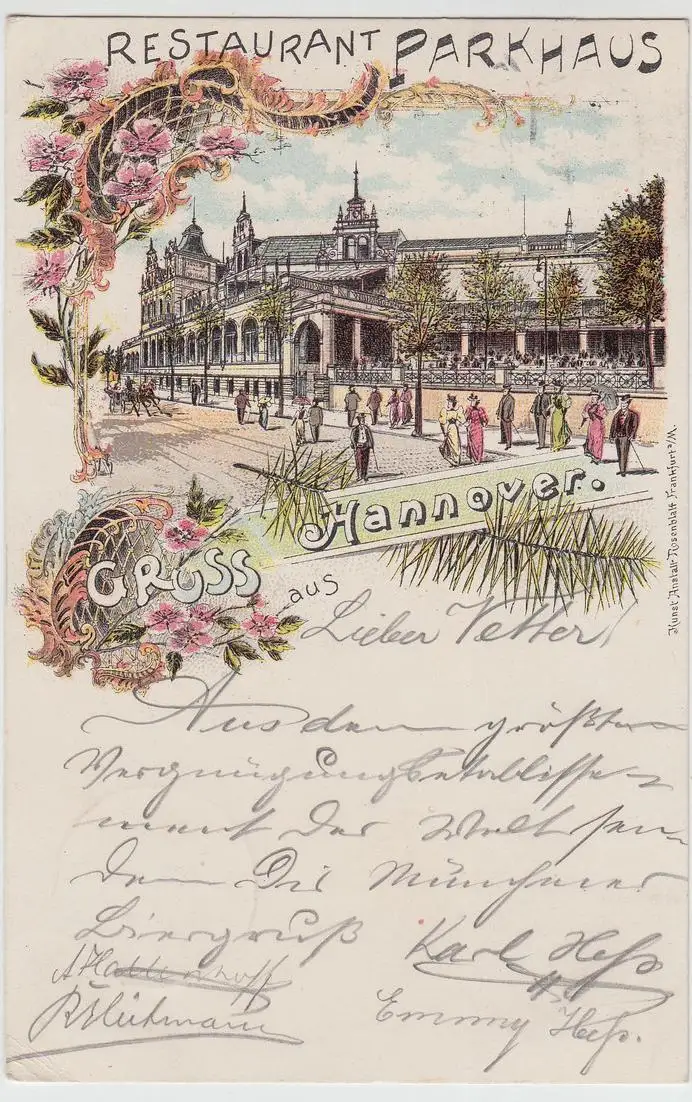 RESTAURANT PARKHAUS
Hannover.
GRUSS aus
Kunst Anstalt Rosenblatt Frankfurt a/M.
Lieber Vetter!
Aus dem größten
Vergnügungsetablisse-
ment der Welt sen-
den Dir Münchner
Biergruß
Karl Heß
Emmy Heß.